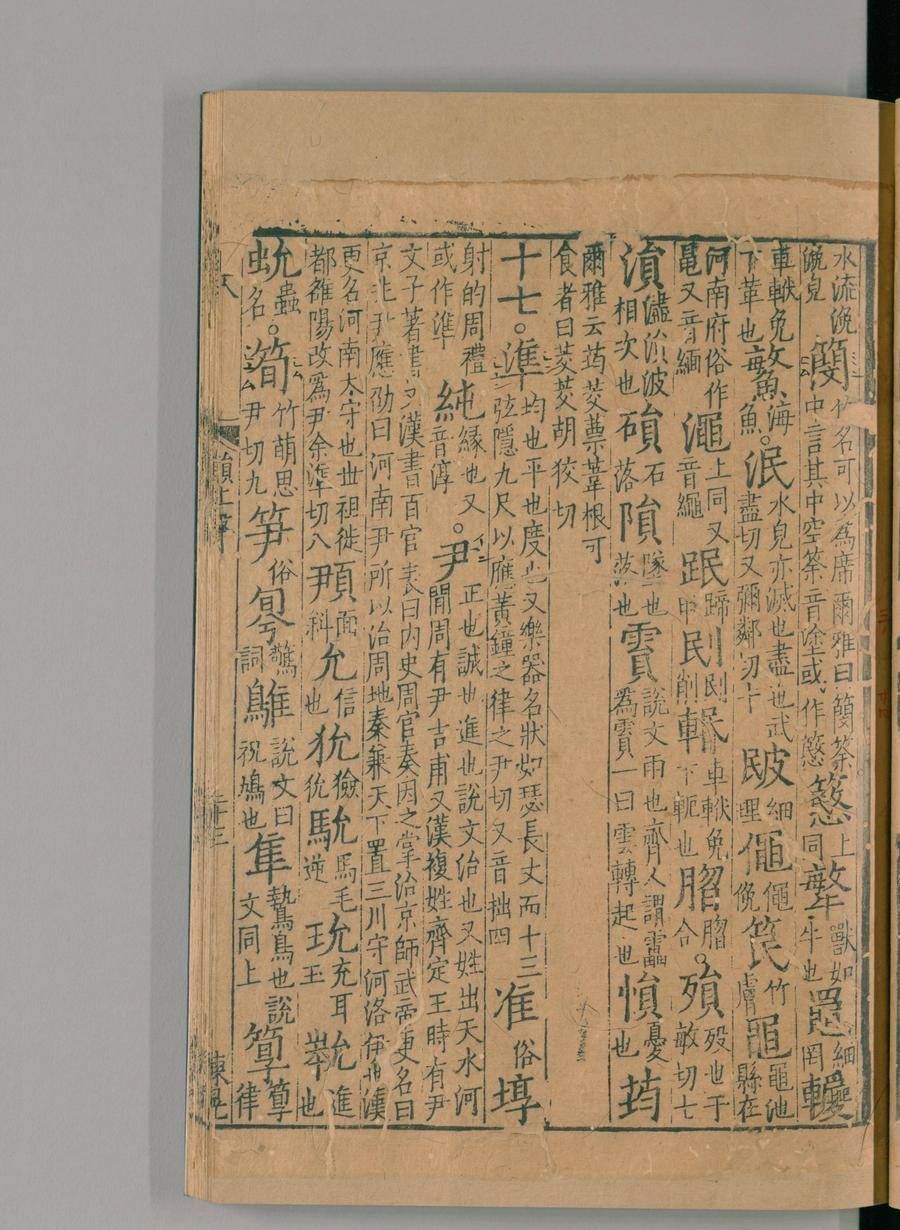 水流浼浼皃簢竹名可以爲席爾雅曰簢筡中言其中空筡音塗或作𢠿𢠿上同𤛓獸如牛也罠細罔𨏵
車軚兔下革也鰵海魚。泯水皃亦滅也盡也武盡切又彌鄰切十䟨細理僶僶俛笢竹膚黽黽池縣在
河南府俗作黽又音緬澠上同又音繩䟨蹄甲刡刡削輾車軚兔下軶也脗脗合。殞歿也于敏切七
溳濜溳波相次也磒石落隕墜也落也霣說文雨也齊人謂靁爲霣一曰雲轉起也愪憂也荺
爾雅云荺茭蔈葦根可食者曰茭茭胡狡切
十七。準均也平也度也又樂器名狀如瑟長丈而十三弦隱九尺以應黃鐘之律之尹切又音拙四准俗埻
射的周禮或作準純緣也又音淳。尹正也誠也進也說文治也又姓出天水河閒周有尹吉甫又漢複姓齊定王時有尹
文子著書又漢書百官表曰内史周官秦因之掌治京師武帝更名曰京兆尹應劭曰河南尹所以治周地秦兼天下置三川守河洛伊也漢
更名河南太守也世祖徙都雒陽改爲尹余準切八𩒚面斜允信也狁獫狁馻馬毛逆玧充耳玉𡴞進也
蚖蟲名。筍竹萌思尹切九笋俗㝁驚詞鵻說文曰祝鳩也隼鷙鳥也說文同上簨簨律